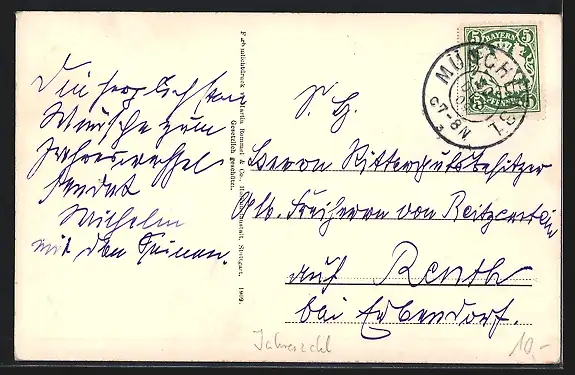 Die herzlichsten
Wünsche zum
Jahreswechsel
sendet
Wilhelm
mit den Seinen.
Farbenlichtdruck Martin Rommel & Co., Stuttgart. 1909.
Gesetzlich geschützt.
5 BAYERN 5
PFENNIG
MÜNCHEN
7-8 N
S. Hg.
Herrn Rittergutsbesitzer
Alb. Freiherrn von Reitzenstein
auf Reuth
bei Erbendorf.
Jahreszahl
10,-